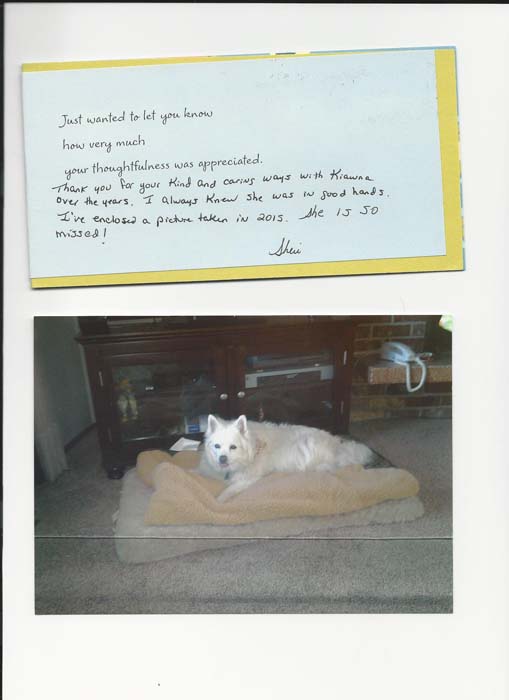 Just wanted to let you know
how very much
your thoughtfulness was appreciated.
Thank you for your kind and caring ways with Kiawna
over the years. I always knew she was in good hands.
I've enclosed a picture taken in 2015. She is so
missed!
Sheri